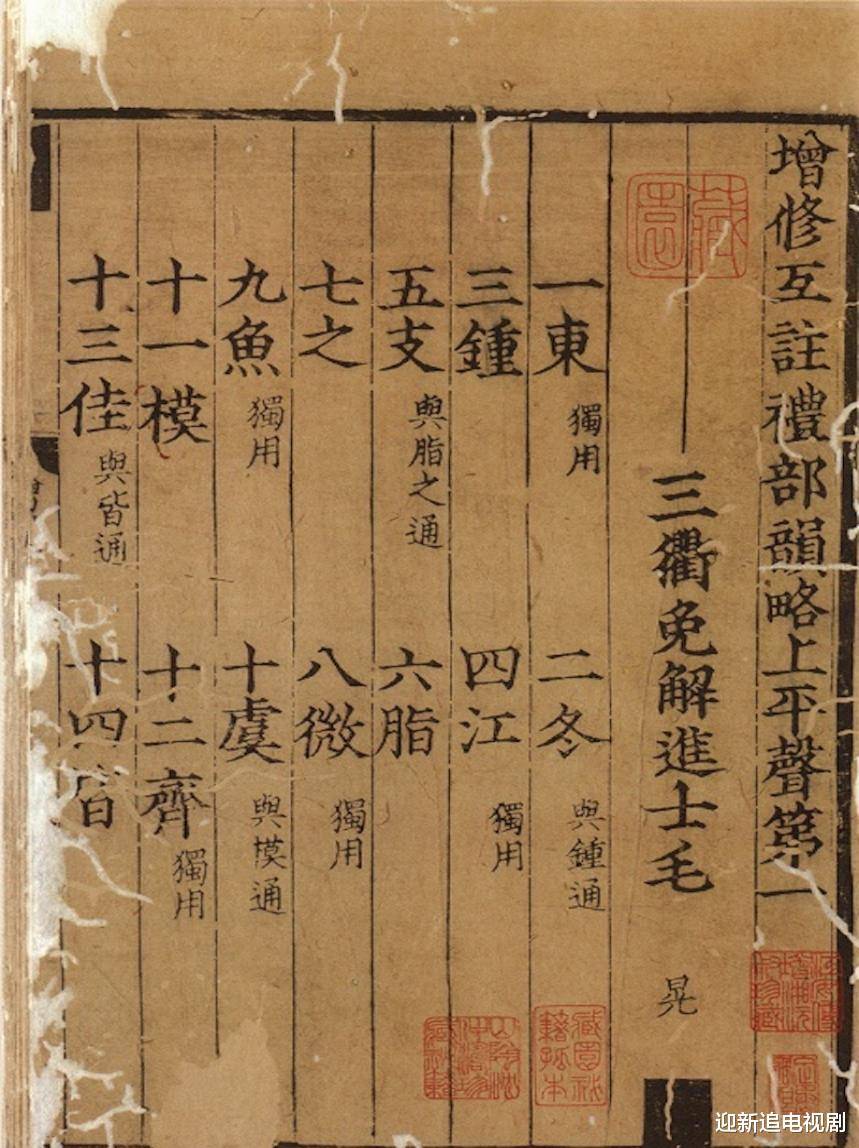 增修互註禮部韻略上平聲第一
三衢免解進士毛 晃
一東 獨用 二冬 與鍾通
三鍾 四江 獨用
五支 與脂之通 六脂
七之 八微 獨用
九魚 獨用 十虞 與模通
十一模 十二齊 獨用
十三佳 與皆通 十四皆
藏園
藏園祕籍孤本
迎新追电视剧